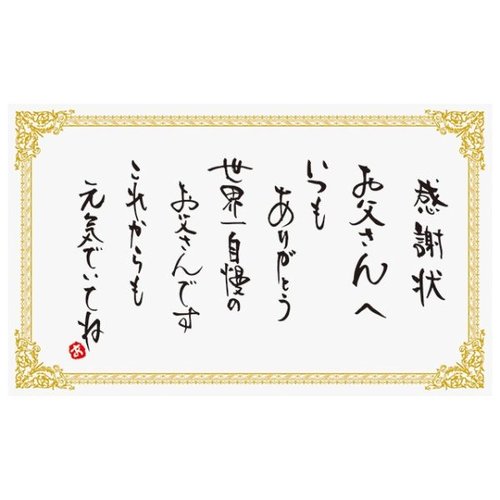 感謝状
お父さんへ
いつも
ありがとう
世界一自慢の
お父さんです
これからも
元気でいてね
あ